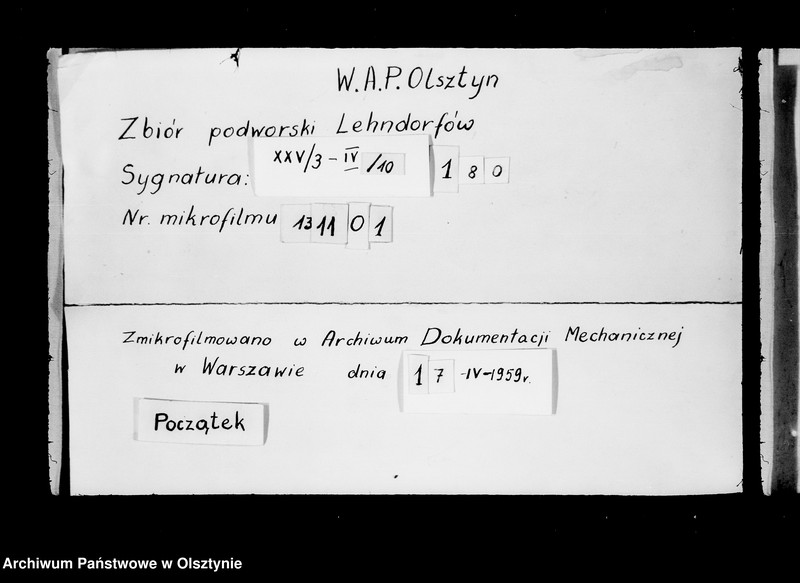 W.A.P. Olsztyn
Zbiór podworski Lehndorfów
Sygnatura: XXV/3 - IV /10 180
Nr. mikrofilmu 131101
Zmikrofilmowano w Archiwum Dokumentacji Mechanicznej
w Warszawie dnia 17 -IV-1959r.
Początek
Archiwum Państwowe w Olsztynie